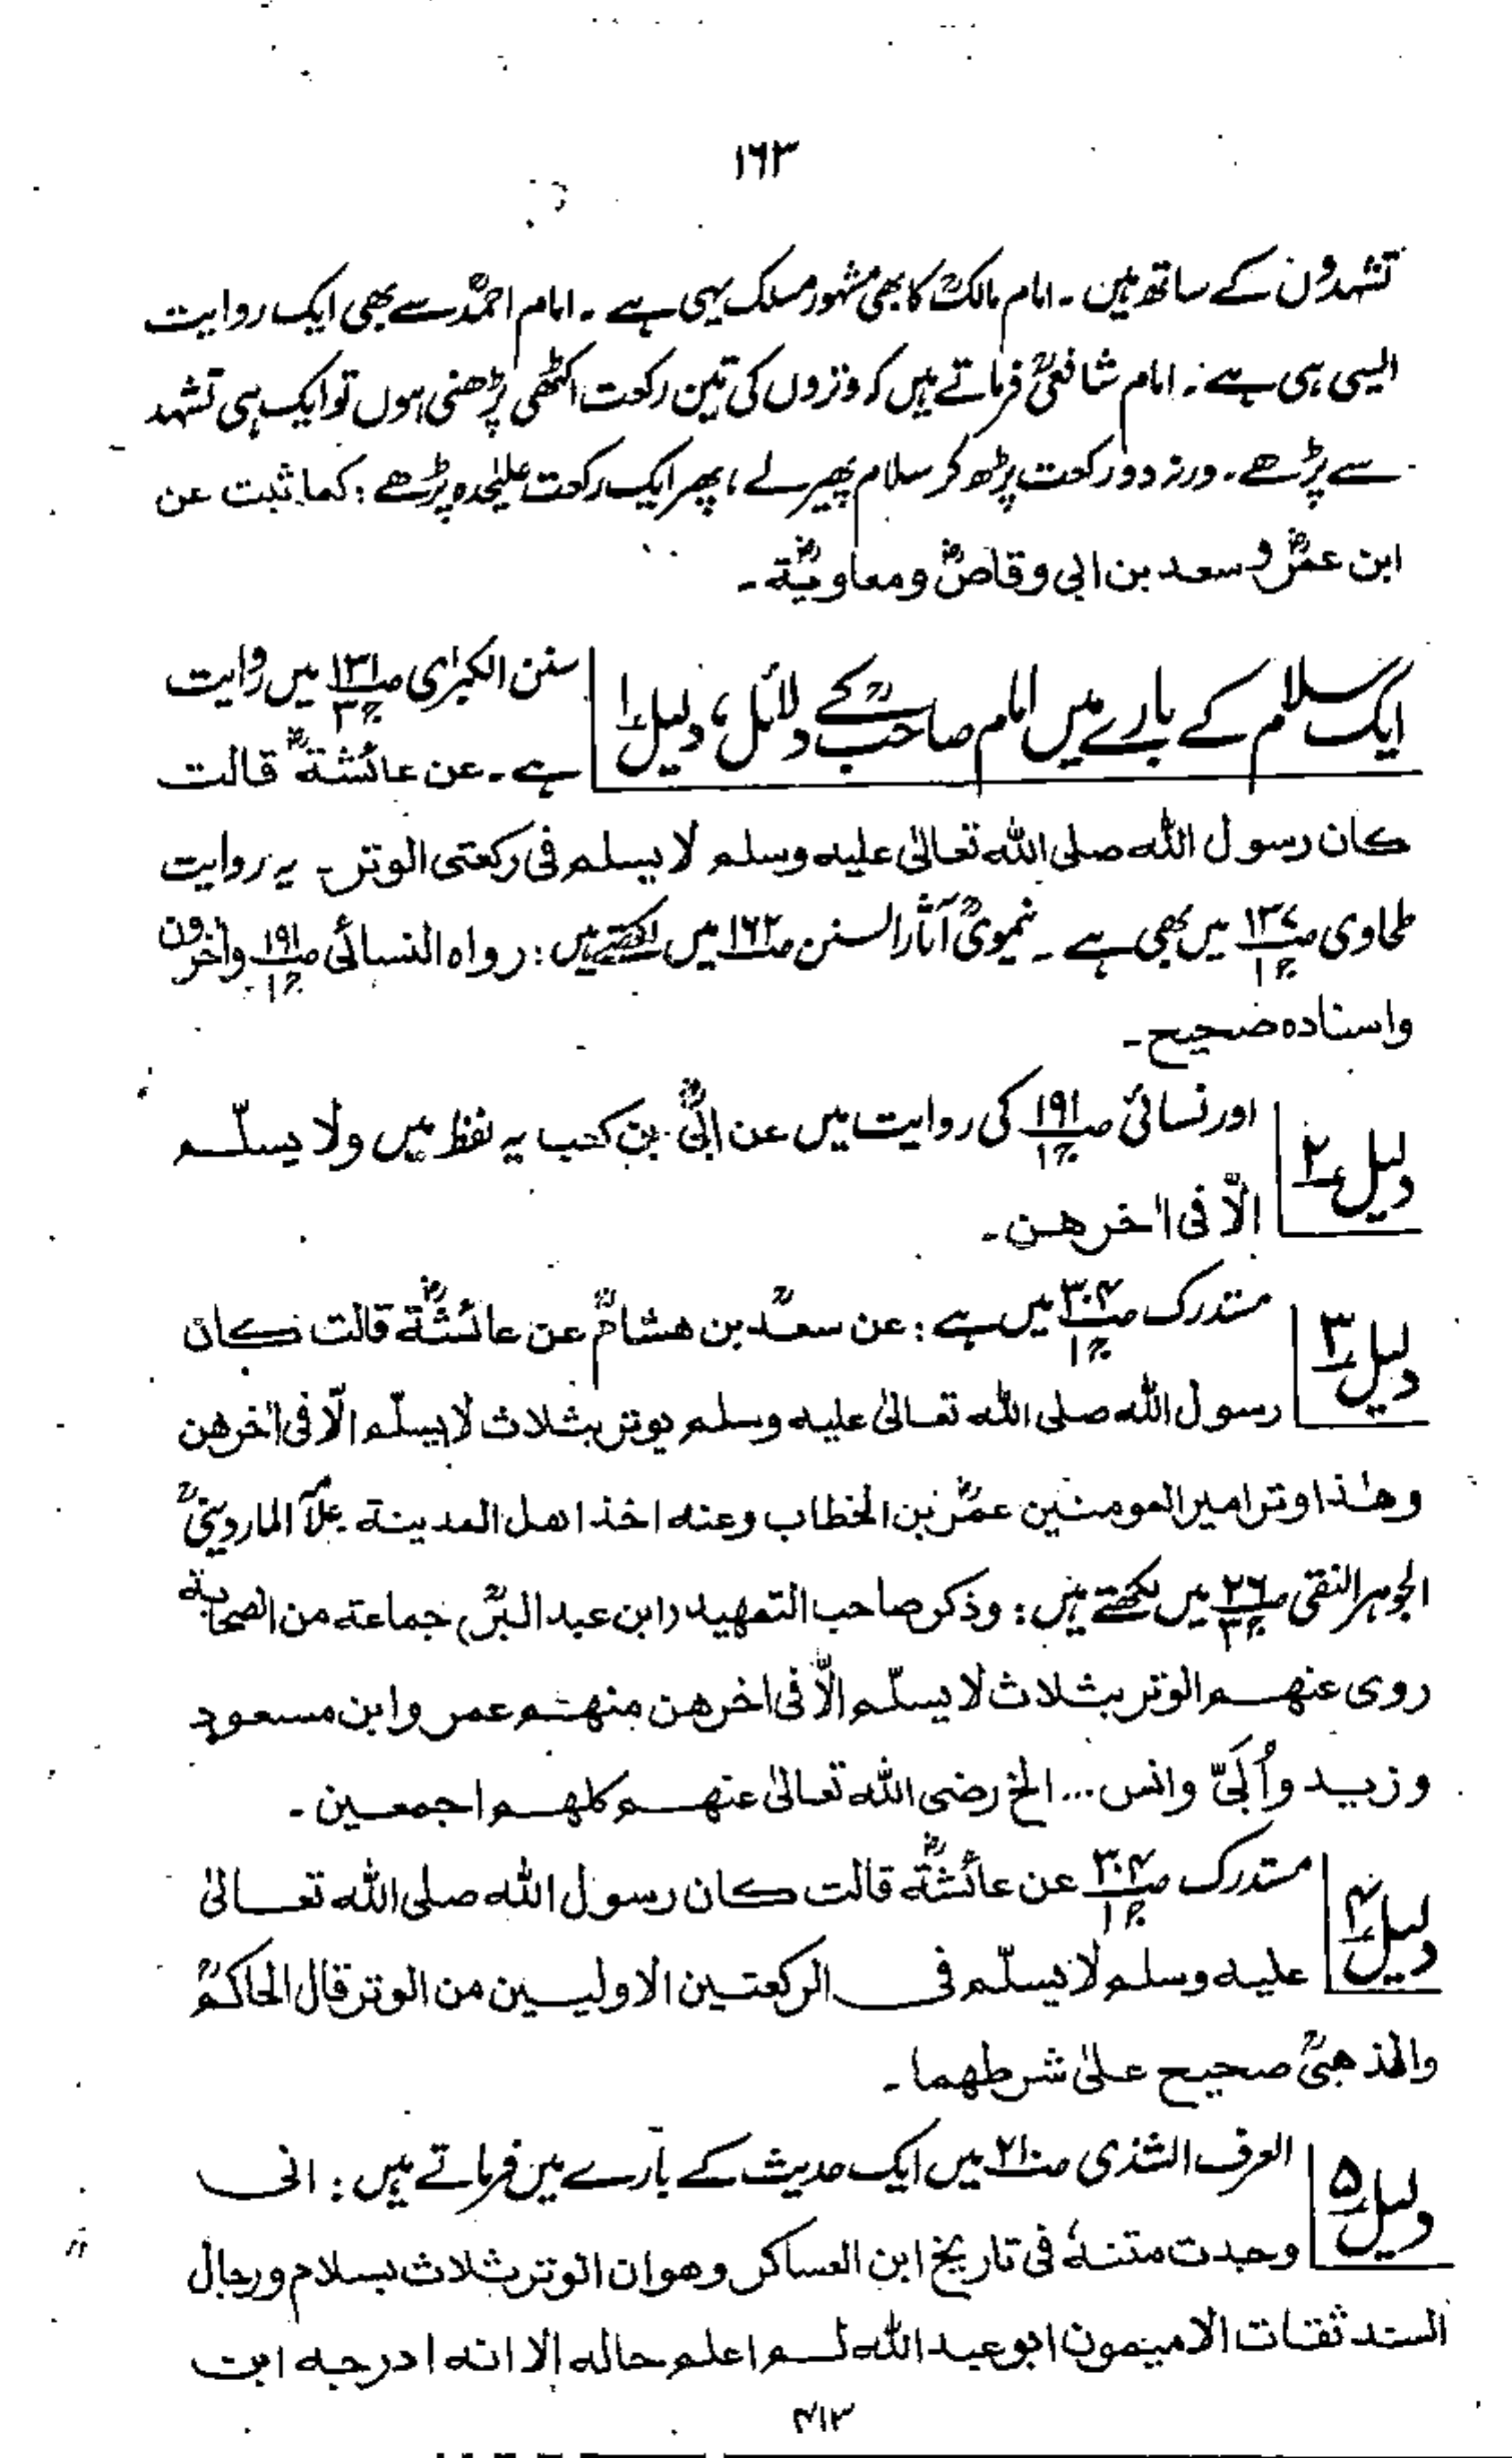 ۱۶۳
تشہدوں کے ساتھ ہیں ۔ امام مالکؒ کا بھی مشہور مسلک یہی ہے ۔ امام احمدؒ سے بھی ایک روایت
ایسی ہی ہے ۔ امام شافعیؒ فرماتے ہیں کہ وتروں کی تین رکعت اکٹھی پڑھنی ہوں تو ایک ہی تشہد
سے پڑھے ۔ ورنہ دو رکعت پڑھ کر سلام پھیر لے ، پھر ایک رکعت علیٰحدہ پڑھے : کما ثبت عن
ابن عمرؓ و سعد بن ابی وقاصؓ و معاویۃؓ ۔
ایک سلام کے بارے میں امام صاحبؒ کے دلائل ، دلیل ۱ سنن الکبرٰی ص۱۳۱ ج۳ میں روایت
ہے ۔ عن عائشۃؓ قالت
کان رسول اللہ صلی اللہ تعالیٰ علیہ وسلم لا یسلم فی رکعتی الوتر ۔ یہ روایت
طحاوی ص۱۳۷ ج۱ میں بھی ہے ۔ نیمویؒ آثار السنن ص۱۶۲ میں لکھتے ہیں : رواہ النسائی ص۱۹۱ ج۱ وآخرون
واسنادہ صحیح ۔
دلیل ۲ اور نسائی ص۱۹۱ ج۱ کی روایت میں عن ابیؓ بن کعب یہ لفظ ہیں ولا یسلّم
الّا فی اٰخرھن ۔
دلیل ۳ مستدرک ص۳۰۴ ج۱ میں ہے : عن سعدؒ بن ھشامؓ عن عائشۃؓ قالت کان
رسول اللہ صلی اللہ تعالیٰ علیہ وسلم یوتر بثلاث لا یسلّم الّا فی اٰخرھن
وھٰذا وتر امیر المومنین عمرؓ بن الخطاب وعنہ اخذ اھل المدینۃ ۔ علّامہ الماردینیؒ
الجوہر النقی ص۲۶ ج۳ میں لکھتے ہیں : وذکر صاحب التمھید (ابن عبد البرؒ) جماعۃ من الصحابۃ
روی عنھم الوتر بثلاث لا یسلّم الّا فی اخرھن منھم عمر وابن مسعود
وزید واُبَیّ وانس ... الخ رضی اللہ تعالیٰ عنھم کلھم اجمعین ۔
دلیل ۴ مستدرک ص۳۰۴ ج۱ عن عائشۃؓ قالت کان رسول اللہ صلی اللہ تعالیٰ
علیہ وسلم لا یسلّم فی الرکعتین الاولیین من الوتر قال الحاکمؒ
والذھبیؒ صحیح علیٰ شرطھما ۔
دلیل ۵ العرف الشذی ص۲۱۰ میں ایک حدیث کے بارے میں فرماتے ہیں : انی
وجدت متنہٗ فی تاریخ ابن العساکر وھو ان الوتر بثلاث بسلام و رجال
السند ثقات الا میمون ابو عبد اللہ لم اعلم حالہ الا انہ ادرجہ ابن
۴۱۳